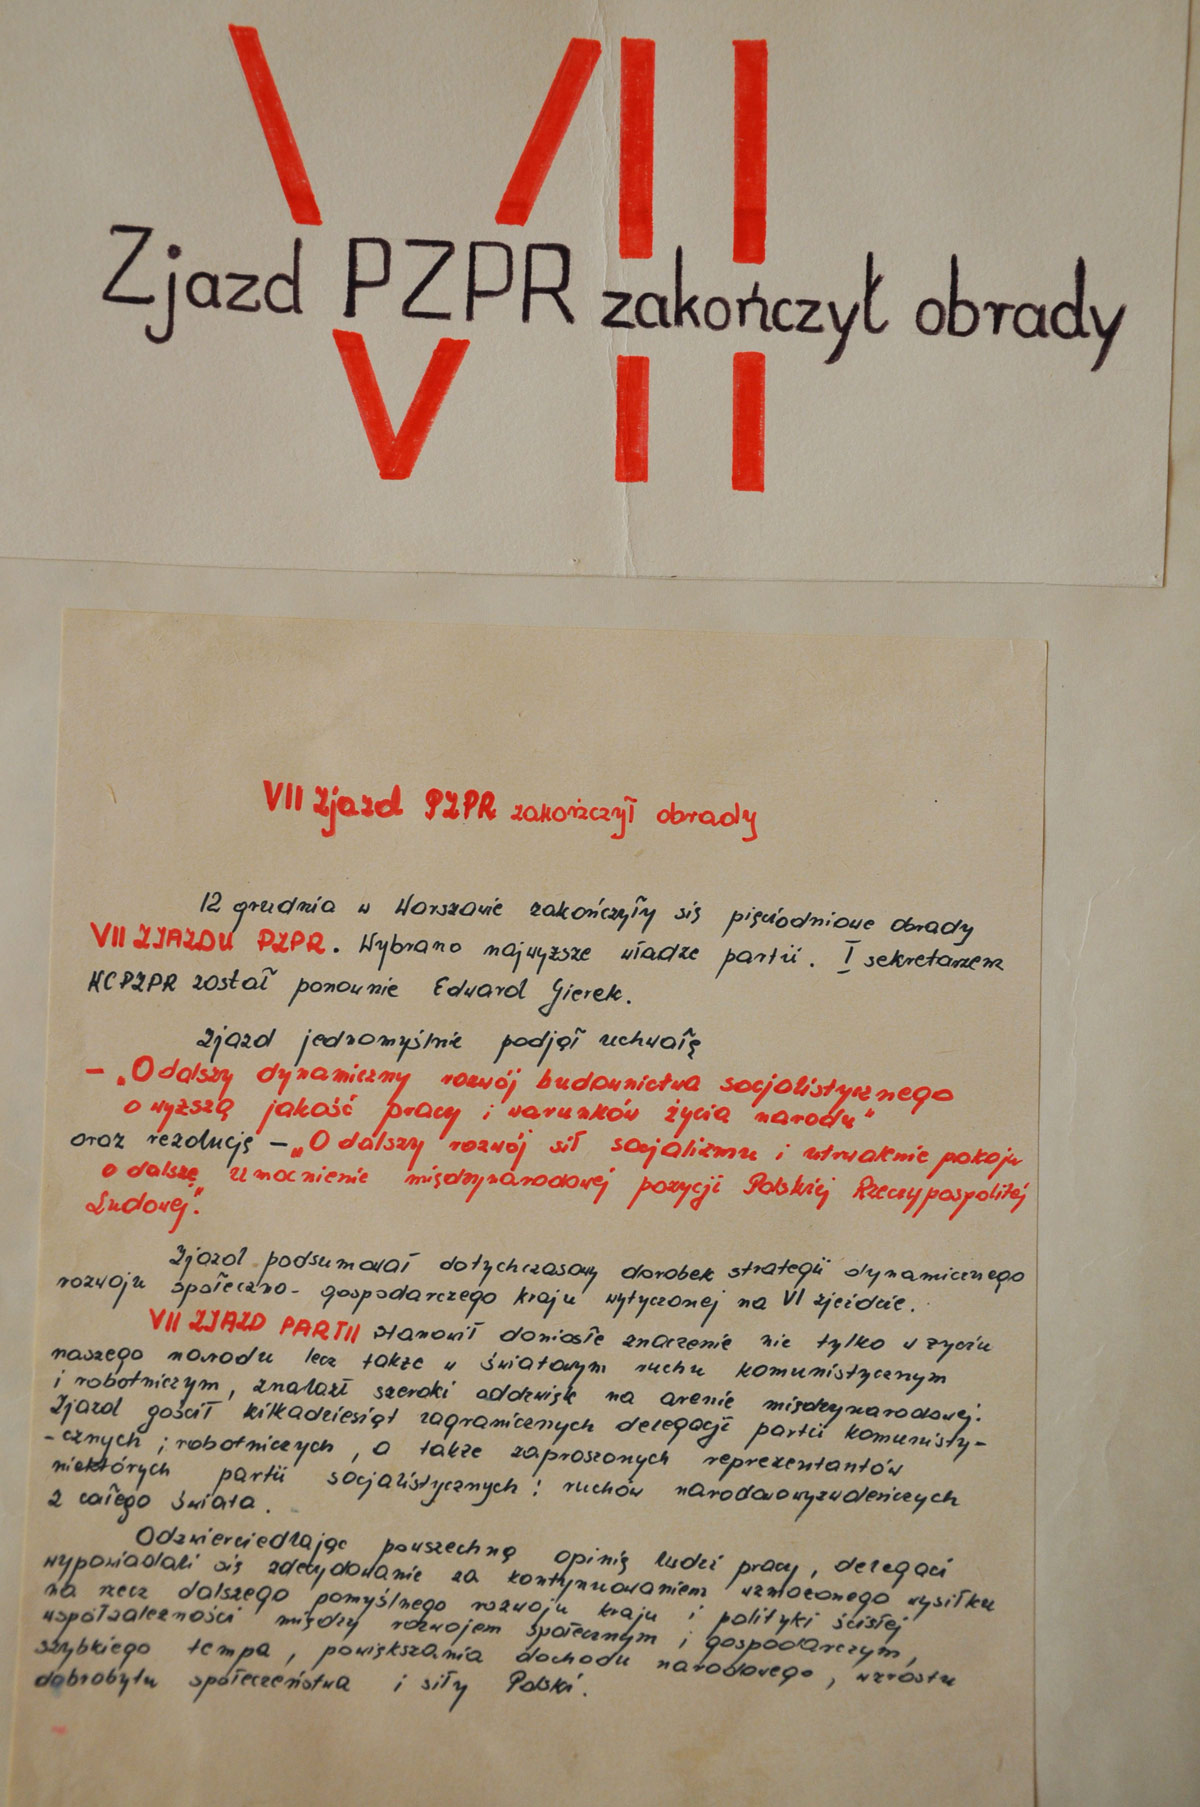 VII
Zjazd PZPR zakończył obrady
VII Zjazd PZPR zakończył obrady
12 grudnia w Warszawie zakończyły się pięciodniowe obrady
VII ZJAZDU PZPR. Wybrano najwyższe władze partii. I sekretarzem
KC PZPR został ponownie Edward Gierek.
Zjazd jednomyślnie podjął uchwałę
- „O dalszy dynamiczny rozwój budownictwa socjalistycznego
o wyższą jakość pracy i warunków życia narodu"
oraz rezolucję - „O dalszy rozwój sił socjalizmu i utrwalenie pokoju
o dalszę umocnienie międzynarodowej pozycji Polskiej Rzeczypospolitej
Ludowej."
Zjazd podsumował dotychczasowy dorobek strategii dynamicznego
rozwoju społeczno-gospodarczego kraju wytyczonej na VI zjeździe.
VII ZJAZD PARTII stanowił doniosłe znaczenie nie tylko w życiu
naszego narodu lecz także w światowym ruchu komunistycznym
i robotniczym, znalazł szeroki oddzwięk na arenie międzynarodowej.
Zjazd gościł kilkadziesiąt zagranicznych delegacji partii komunisty-
-cznych i robotniczych, a także zaproszonych reprezentantów
niektórych partii socjalistycznych i ruchów narodowowyzwoleńczych
z całego świata.
Odzwierciedlając powszechną opinię ludzi pracy, delegaci
wypowiadali się zdecydowanie za kontynuowaniem wzmożonego wysiłku
na rzecz dalszego pomyślnego rozwoju kraju i polityki ścisłej
współzależności między rozwojem społecznym i gospodarczym,
szybkiego tempa, powiększania dochodu narodowego, wzrostu
dobrobytu społeczeństwa i siły Polski.